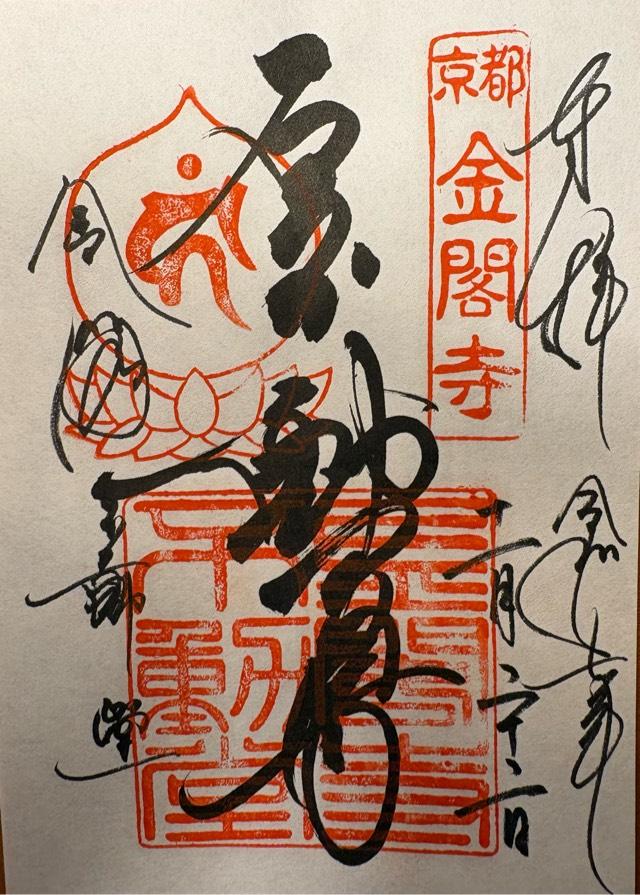 奉拝
令和七年
十一月二十二日
京都
金閣寺
不動尊
金閣
不動堂